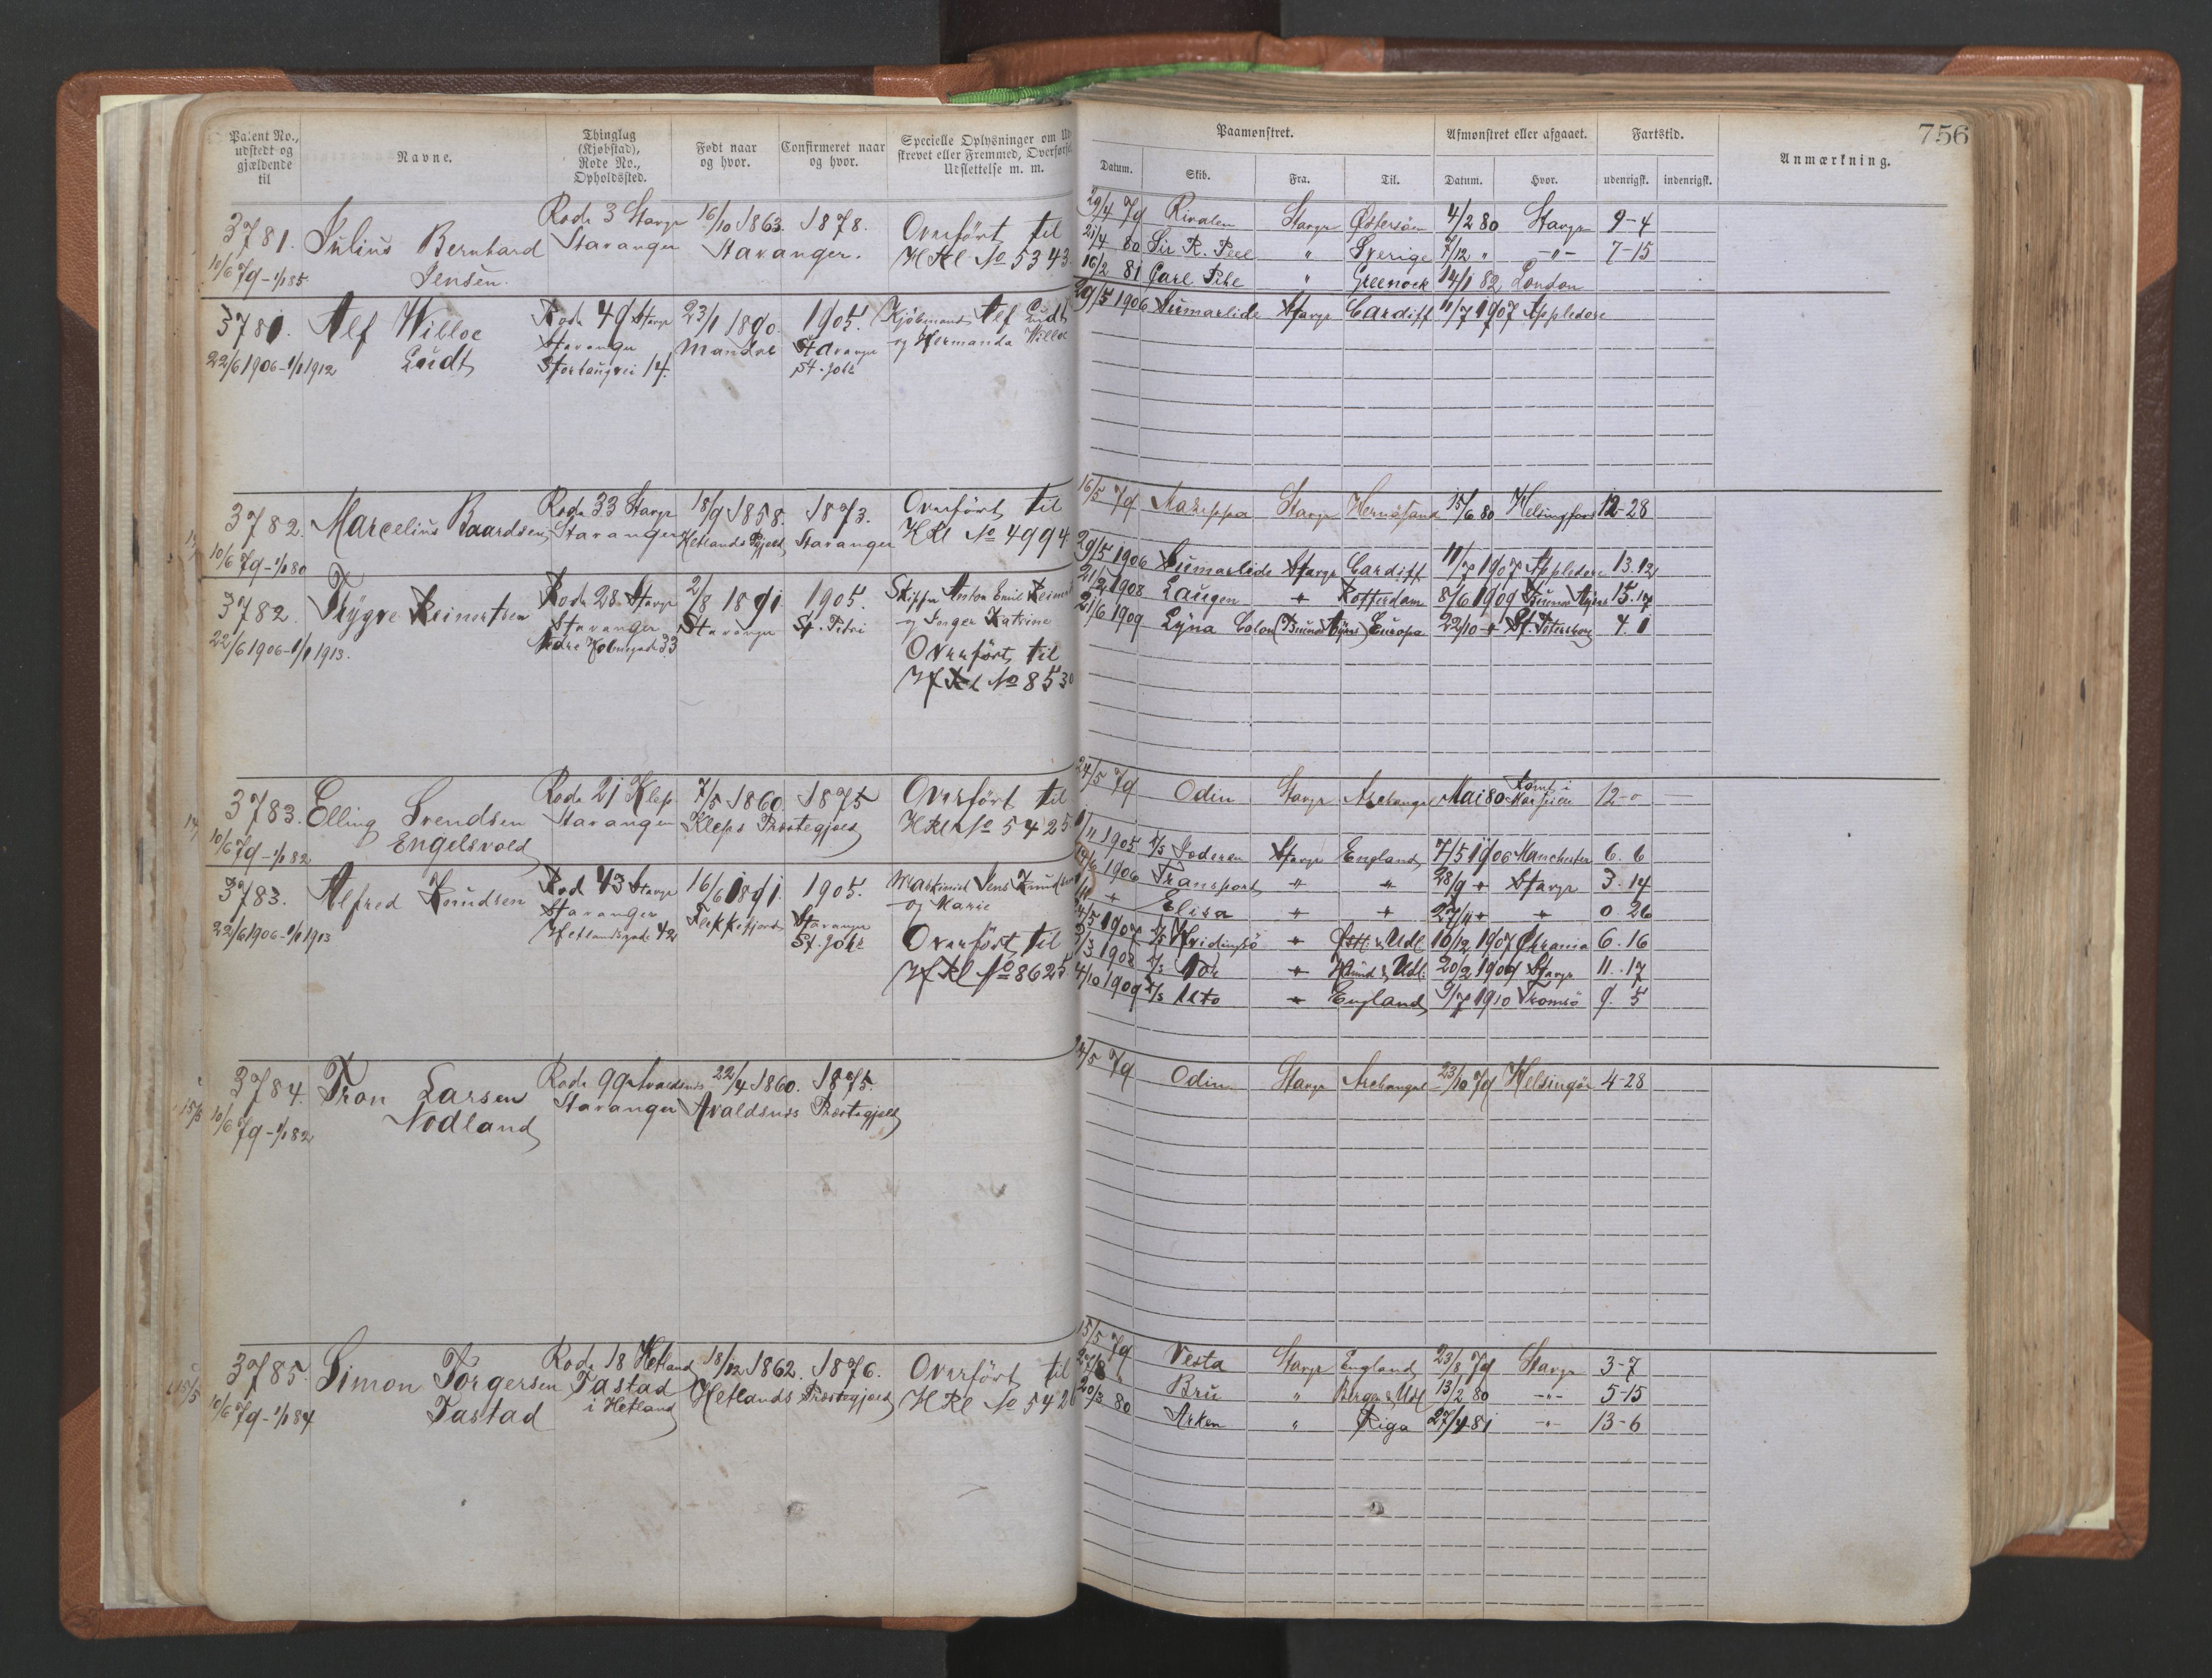 756
Patent No., udstedt og gjældende til
Navne.
Thinglag (Kjøbstad), Rode No., Opholdssted.
Født naar og hvor.
Confirmeret naar og hvor.
Specielle Oplysninger om
skrevet eller Fremmed, Overførsel
Udslettelse m. m.
Paamønstret.
Afmønstret eller afgaaet.
Fartstid.
Anmærkning.
Datum. Skib. Fra. Til. Datum. Hvor. udenrigsk. indenrigsk.
3781. Julius Bernhard Jensen.
10/6 79 - 1/1 85.
Rode 3 Stavgr Stavanger
16/10 1863. 1878.
Stavanger.
Overført til
HRl No 5343
29/4 79 Rivalen Stavgr Østersöen 4/2 80 Stavgr 9-4
21/4 80 Sir R. Peel " Sverige 7/12 " -"- 7-15
16/2 81 Carl Pihl " Greenock 14/1 82 London
3781. Alf Willoe Lüdt
22/6 1906 - 1/1 1912
Rode 49 Stavgr
Stavanger
23/1 1890. Mandal
1905. Stavanger St. Joh
Kjøbmand Alf Lüdt
og Hermanda Willoe
29/5 1906 Sümarlide Stavgr Cardiff 11/7 1907 Appledore
3782. Marcelius Baardsen
10/6 79 - 1/1 80
Rode 33 Stavgr Stavanger
18/9 1858. Hetlands Pgjeld
1873. Stavanger
Overført til
HRl No 4994
16/5 79 Stavgr Hernösand 15/6 80 Helsingfors 12-28
3782. Trygve Reinertsen
22/6 1906 - 1/1 1913.
Rode 28 Stavgr
Stavanger
Nedre Holmegade 33
2/8 1891. Stavanger
1905. St. Petri
Skipper Anton Emil
og Inger Katrine
Overført til
HfRl No 8530
29/5 1906 Sümarlide Stavgr Cardiff 11/7 1907 Appledore 13.12
21/2 1908 Laugen " Rotterdam 8/6 1909 Buenos Ayres 15.17
21/6 1909 Lyna Colon (Buenos Ayres) Europa 22/10 " St. Petersborg 4.1
3783. Elling Svendsen Engelsvold
10/6 79 - 1/1 82
Rode 21 Klep Stavanger
7/5 1860. 1875
Kleps Præstegjæld
Overført til
HRl No 5425
24/5 79 Odin Stavgr Archangel Mai 80 12-0
3783. Alfred Knudsen
22/6 1906 - 1/1 1913
Rod 43 Stavgr
Stavanger
Hetlandsgade 42
16/6 1891. Flekkefjord
1905. Stavanger St. Joh
Jens Knudsen
og Marie
Overført til
HfRl No 8625
1/11 1905 D/S Jæderen Stavgr England 7/5 1906 Manchester 6.6
1906 Transport " " 28/9 " Stavgr 3.14
Elisa " " 27/11 " " 0.26
1907 D/S Hvidingsö " & Udl 16/12 1907 Chrania 6.16
3/3 1908 D/S Nor " & Udl. 20/2 1909 Stavgr 11.17
4/10 1909 D/S Uto " England 9/7 1910 Tromsö 9.5
3784. Tron Larsen Nodland
10/6 79 - 1/1 82
Rode 99 Avaldsnes Stavanger
22/4 1860. 1875.
Avaldsnes Præstegjæld
24/5 79 Odin Stavgr Archangel 23/10 79 Helsingör 4-28
3785. Simon Torgersen Tastad
10/6 79 - 1/1 84
Rode 18 Hetland
Tastad
i Hetland
18/12 1862. 1876.
Hetlands Præstegjæld
Overført til
HRl No 5426
15/5 79 Vesta Stavgr England 23/8 79 Stavgr 3-7
27/8 " Bru " Bergen & Udl 13/2 80 -"- 5-15
20/3 80 Arken " Riga 27/4 81 -"- 13-6